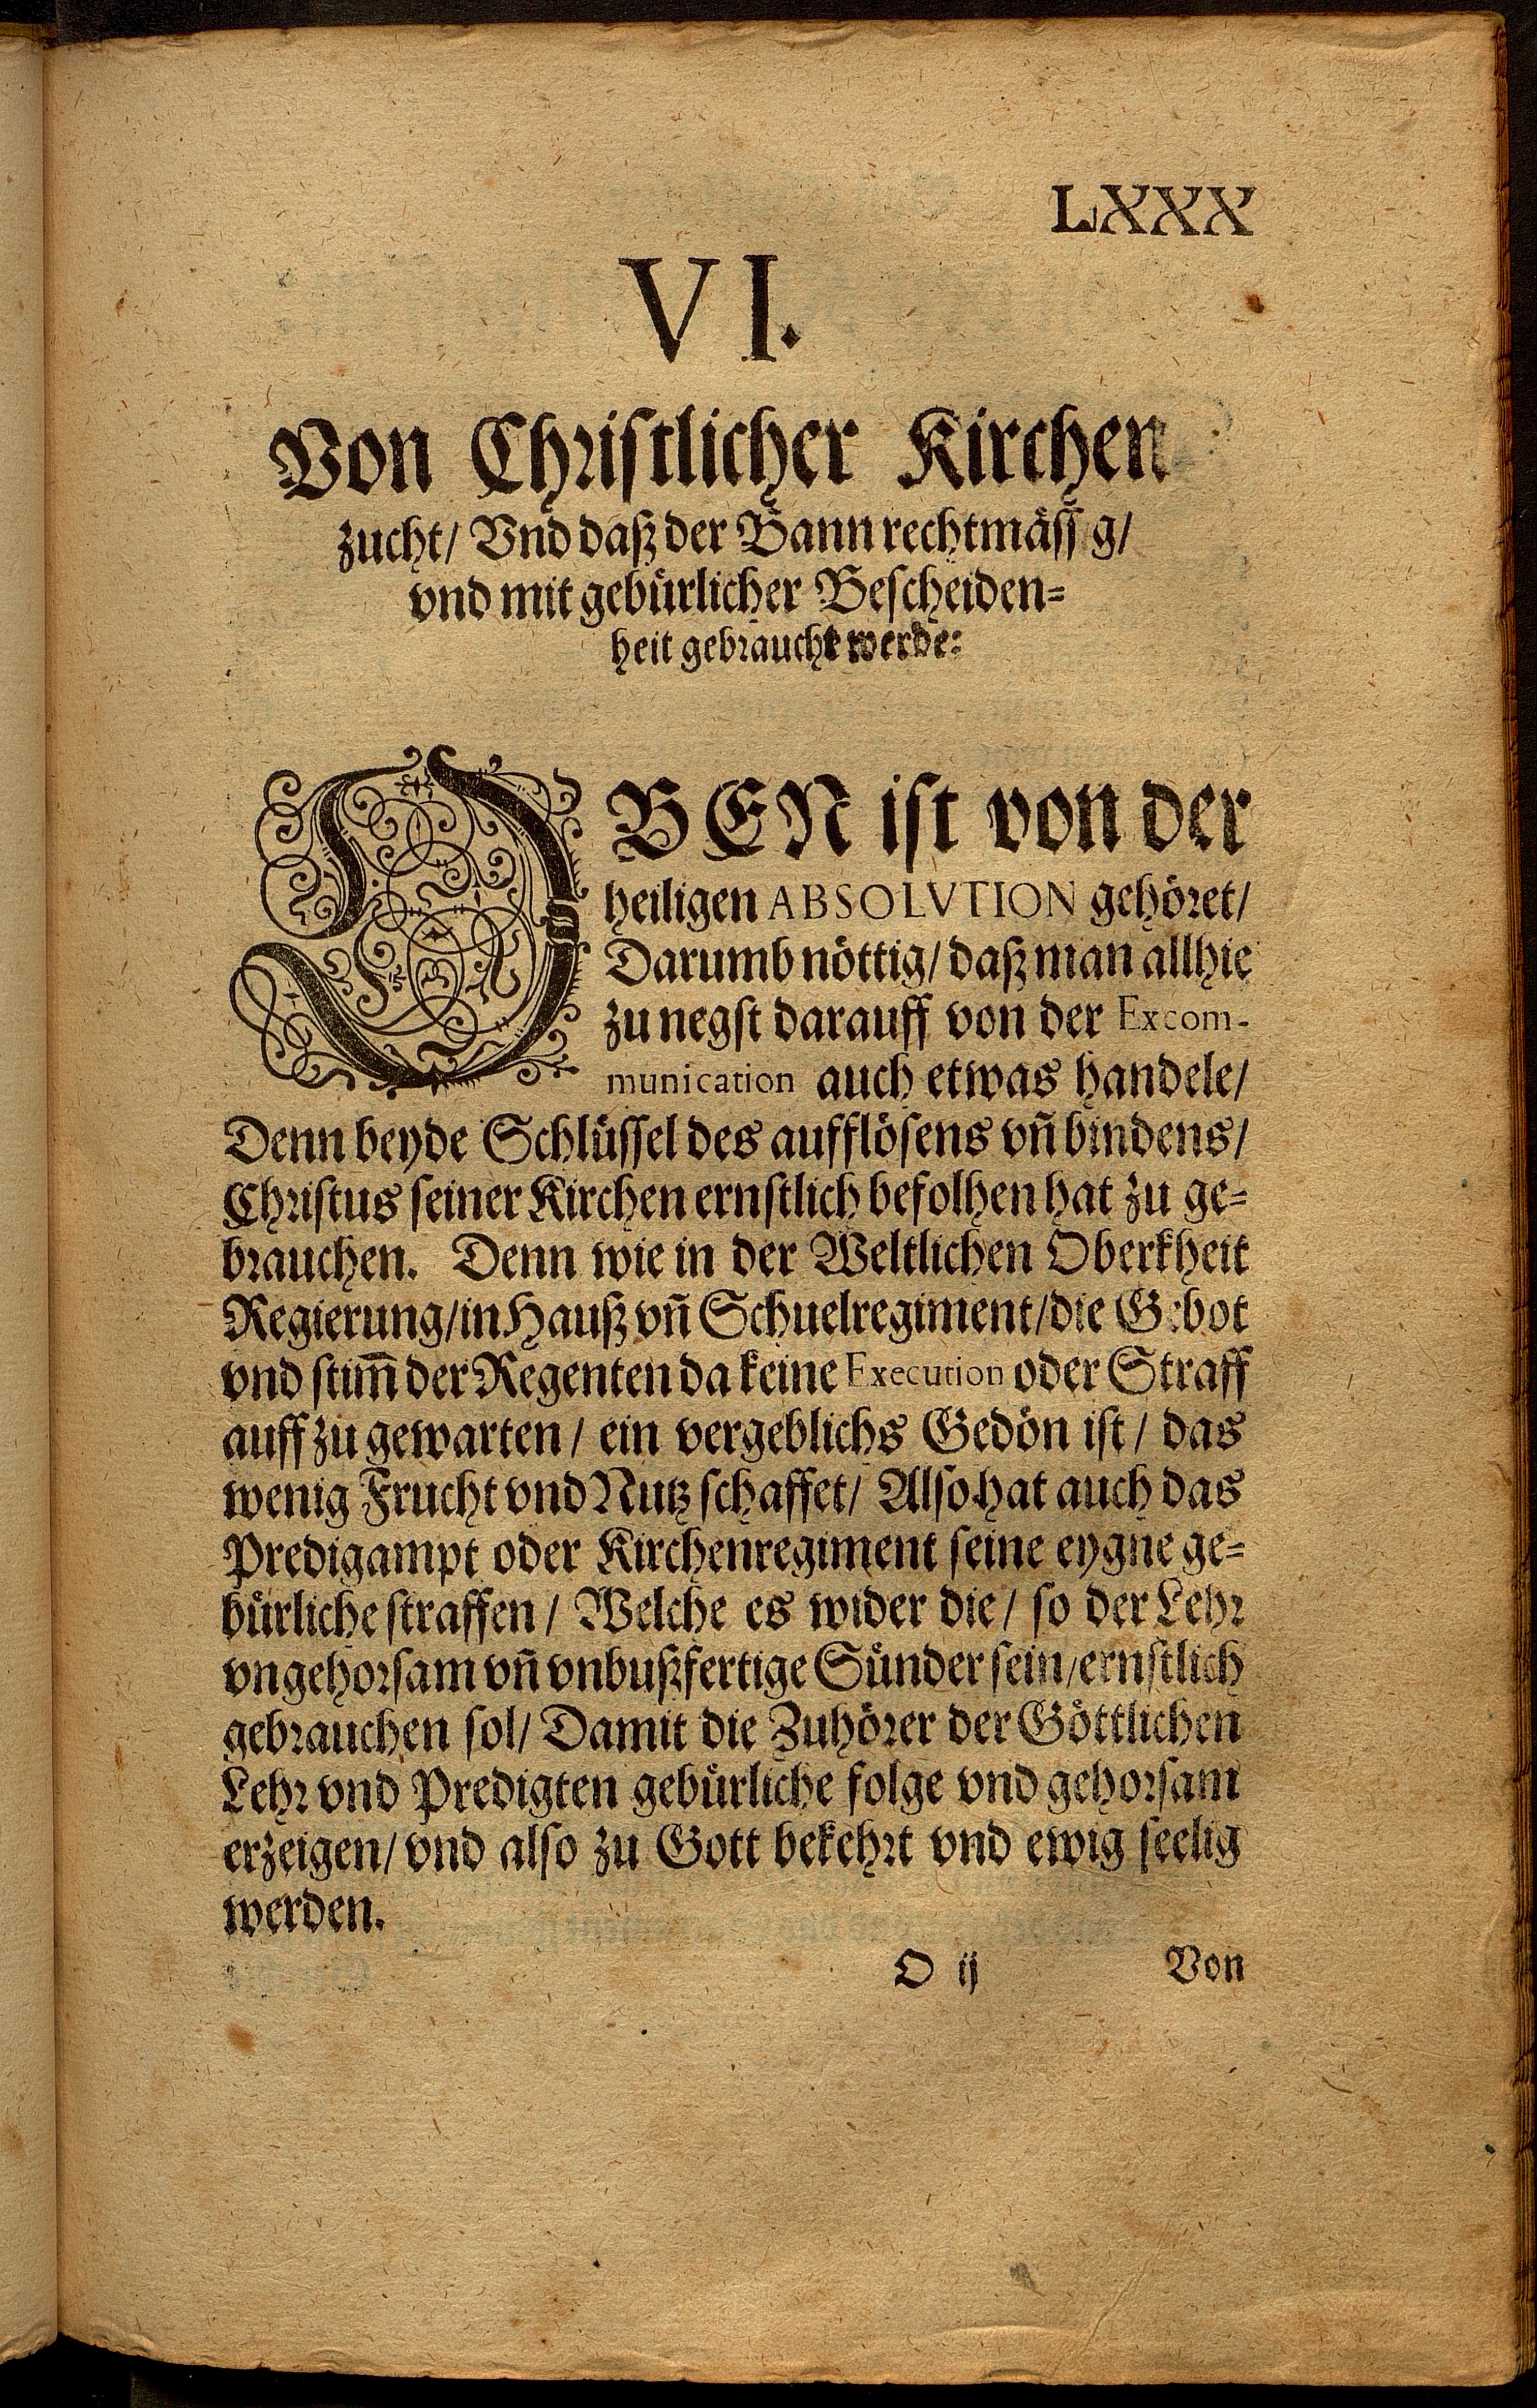 LXXX
VI.
Von Christlicher Kirchen
zucht/ Vnd daß der Bann rechtmäss g/
vnd mit gebürlicher Bescheiden=
heit gebraucht werde:
OBEN ist von der
heiligen ABSOLVTION gehöret/
Darumb nöttig/ daß man allhie
zu negst darauff von der Excom-
munication auch etwas handele/
Denn beyde Schlüssel des aufflösens vñ bindens/
Christus seiner Kirchen ernstlich befolhen hat zu ge=
brauchen. Denn wie in der Weltlichen Oberkheit
Regierung/ in Hauß vñ Schuelregiment/ die Gebot
vnd stim̃ der Regenten da keine Execution oder Straff
auff zu gewarten/ ein vergeblichs Gedön ist/ das
wenig Frucht vnd Nutz schaffet/ Also hat auch das
Predigampt oder Kirchenregiment seine eygne ge=
bürliche straffen/ Welche es wider die/ so der Lehr
vngehorsam vñ vnbußfertige Sünder sein/ ernstlich
gebrauchen sol/ Damit die Zuhörer der Göttlichen
Lehr vnd Predigten gebürliche folge vnd gehorsam
erzeigen/ vnd also zu Gott bekehrt vnd ewig seelig
werden.
O ij Von